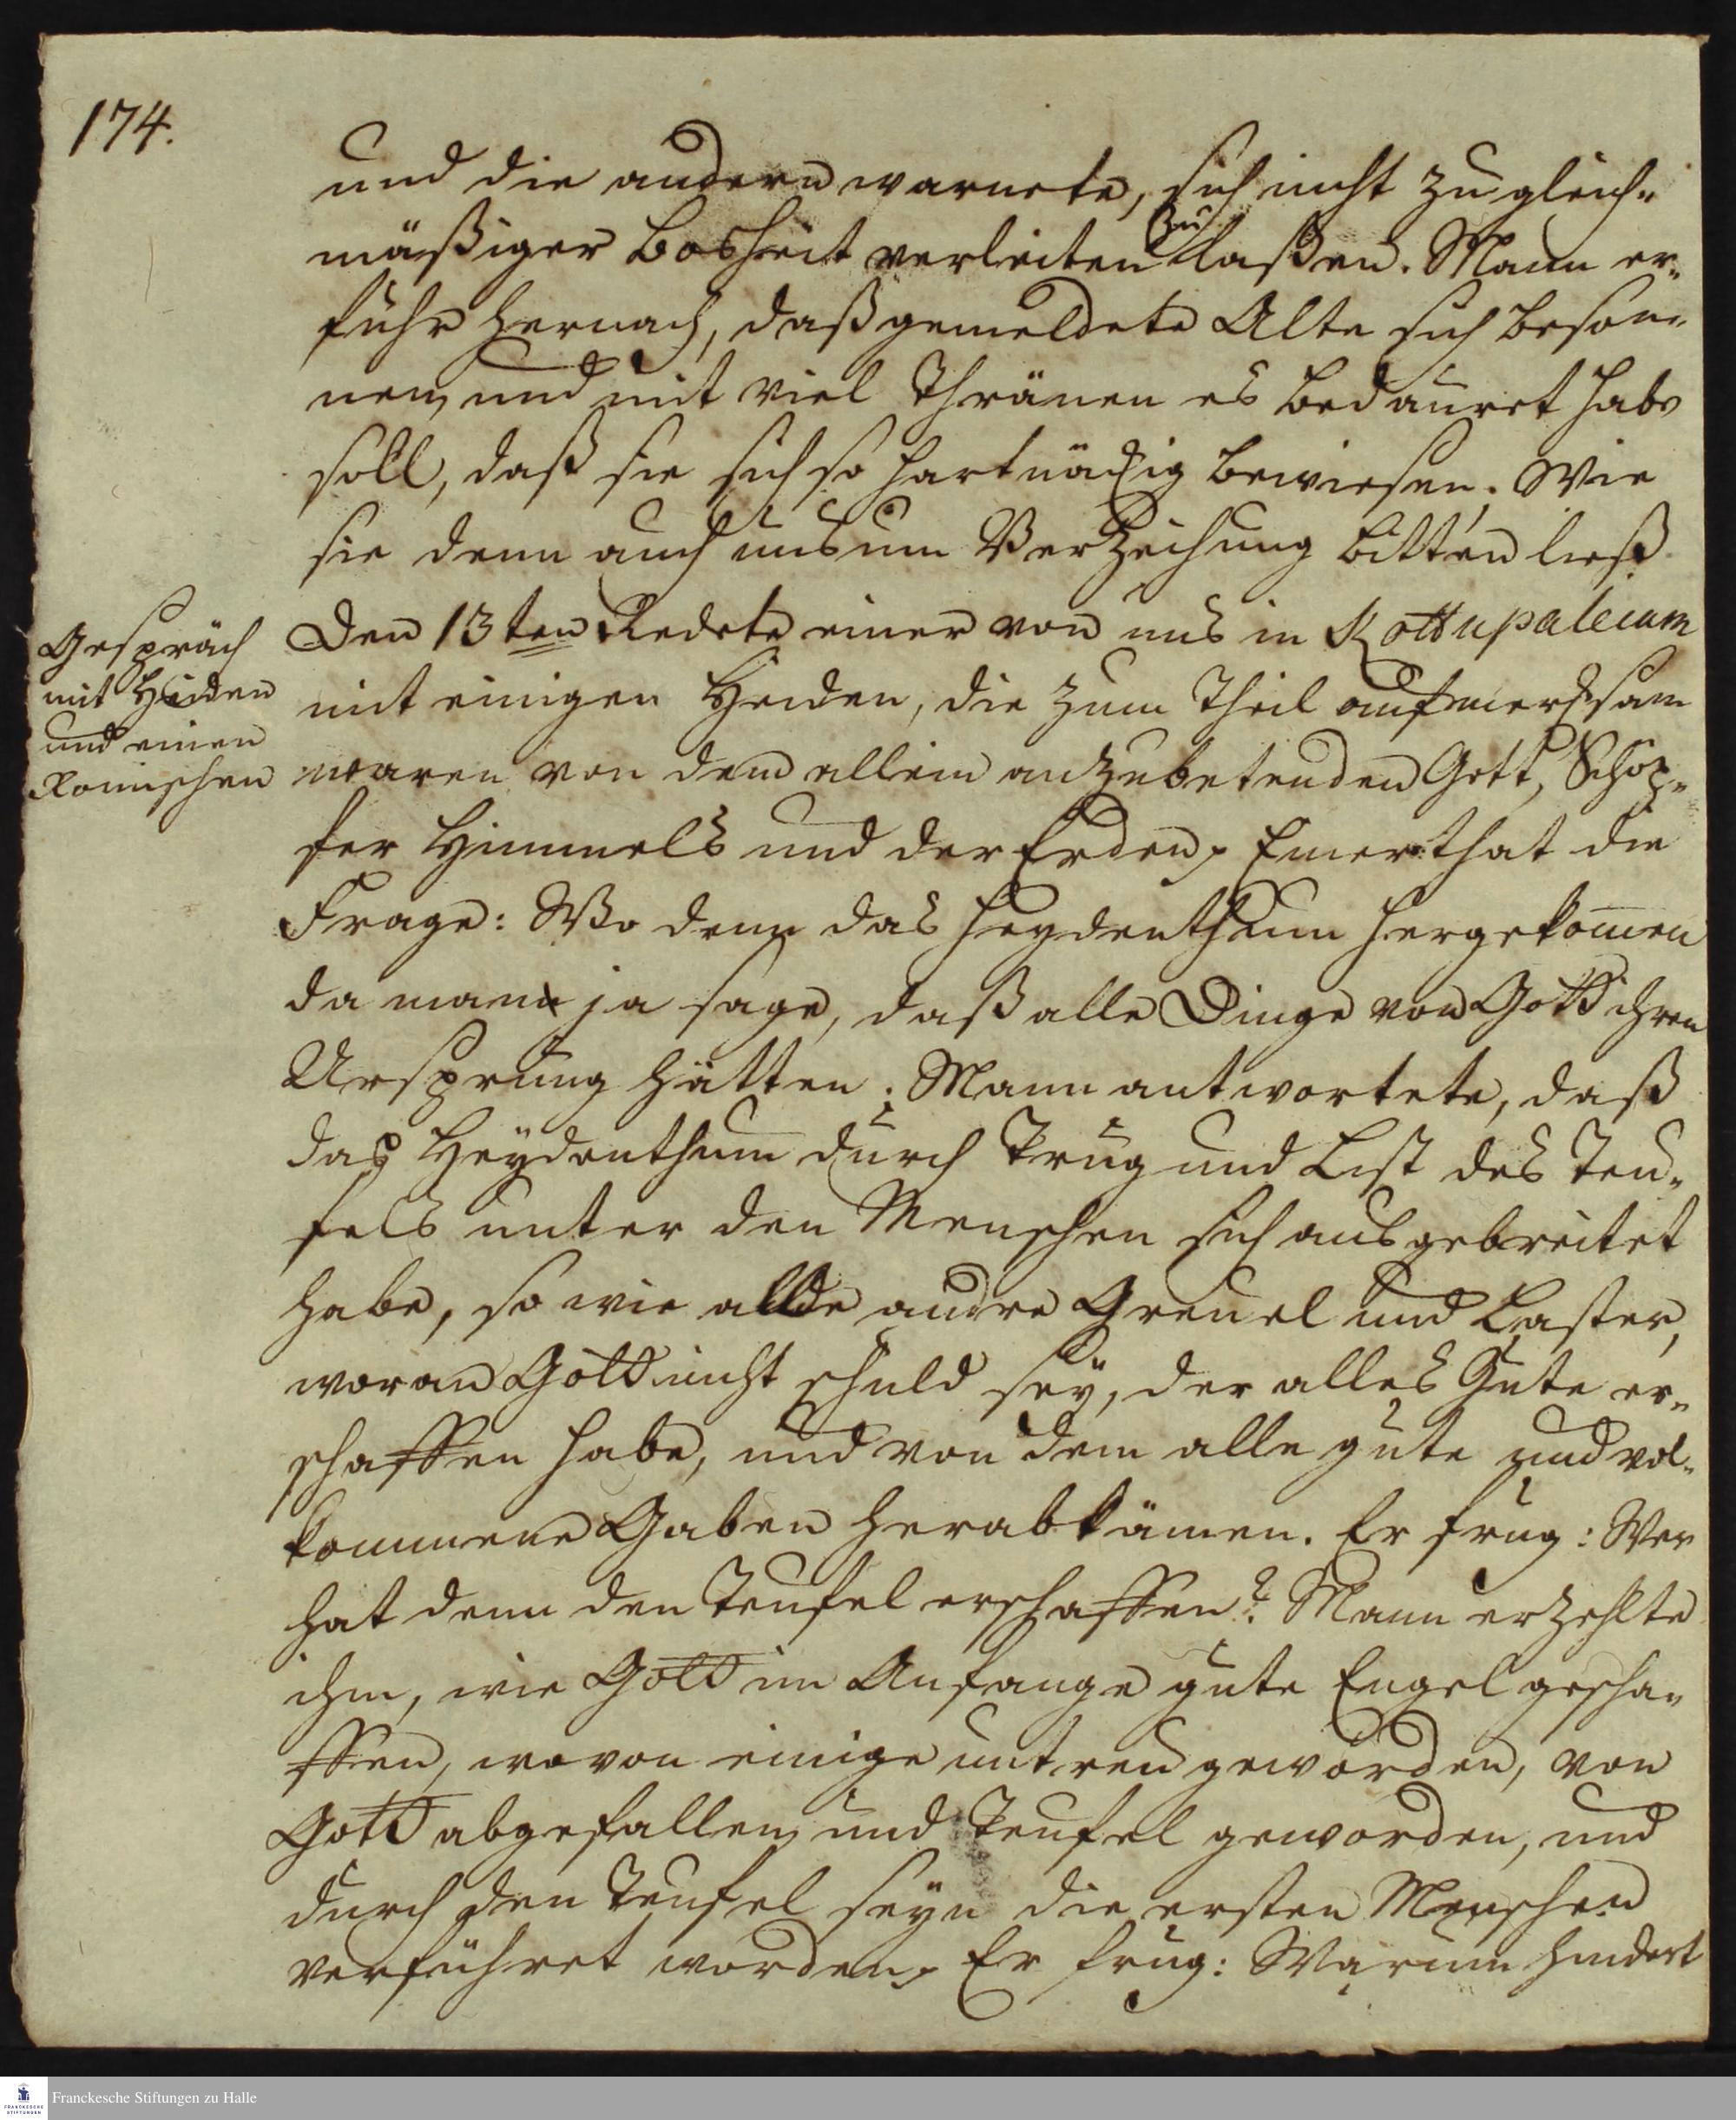 174.
und die andern warnete, sich nicht zu gleich-
mäßiger Bosheit verleiten zu laßen. Mann er-
fuhr hernach, daß gemeldete Alte sich beson-
nen, und mit viel Thränen es bedauret habe
soll, daß sie sich so hartnäckig bewiesen. Wie
sie denn auch uns um Verzeihung bitten ließ
Gespräch
mit Heiden
und einen
Römischen
Den 13ten Redete einer von uns in Kottupaleiam
mit einigen Heiden, die zum Theil aufmercksam
waren von dem allein anzubetenden Gott, Schöp-
fer Himmels und der Erden. Einer that die
Frage: Wo denn das Heydenthum hergekom̅en
da man ja sage, daß alle Dinge von Gott ihren
Ursprung hätten. Mann antwortete, daß
das Heydenthum durch Trug und List des Teu-
fels unter den Menschen sich ausgebreitet
habe, so wie alle andre Greuel und Laster,
woran Gott nicht schuld seÿ, der alles Gute er-
schaffen habe, und von dem alle gute und vol-
kommene Gaben herabkämen. Er frug: Wer
hat denn den Teufel erschaffen? Mann erzehlte
ihm, wie Gott im Anfange gute Engel gescha-
ffen, wovon einige untreu geworden, von
Gott abgefallen und Teufel geworden, und
durch den Teufel seyn die ersten Menschen
verführet worden. Er frug: Warum hindert
Franckesche Stiftungen zu Halle
FRANCKESCHE
STIFTUNGEN